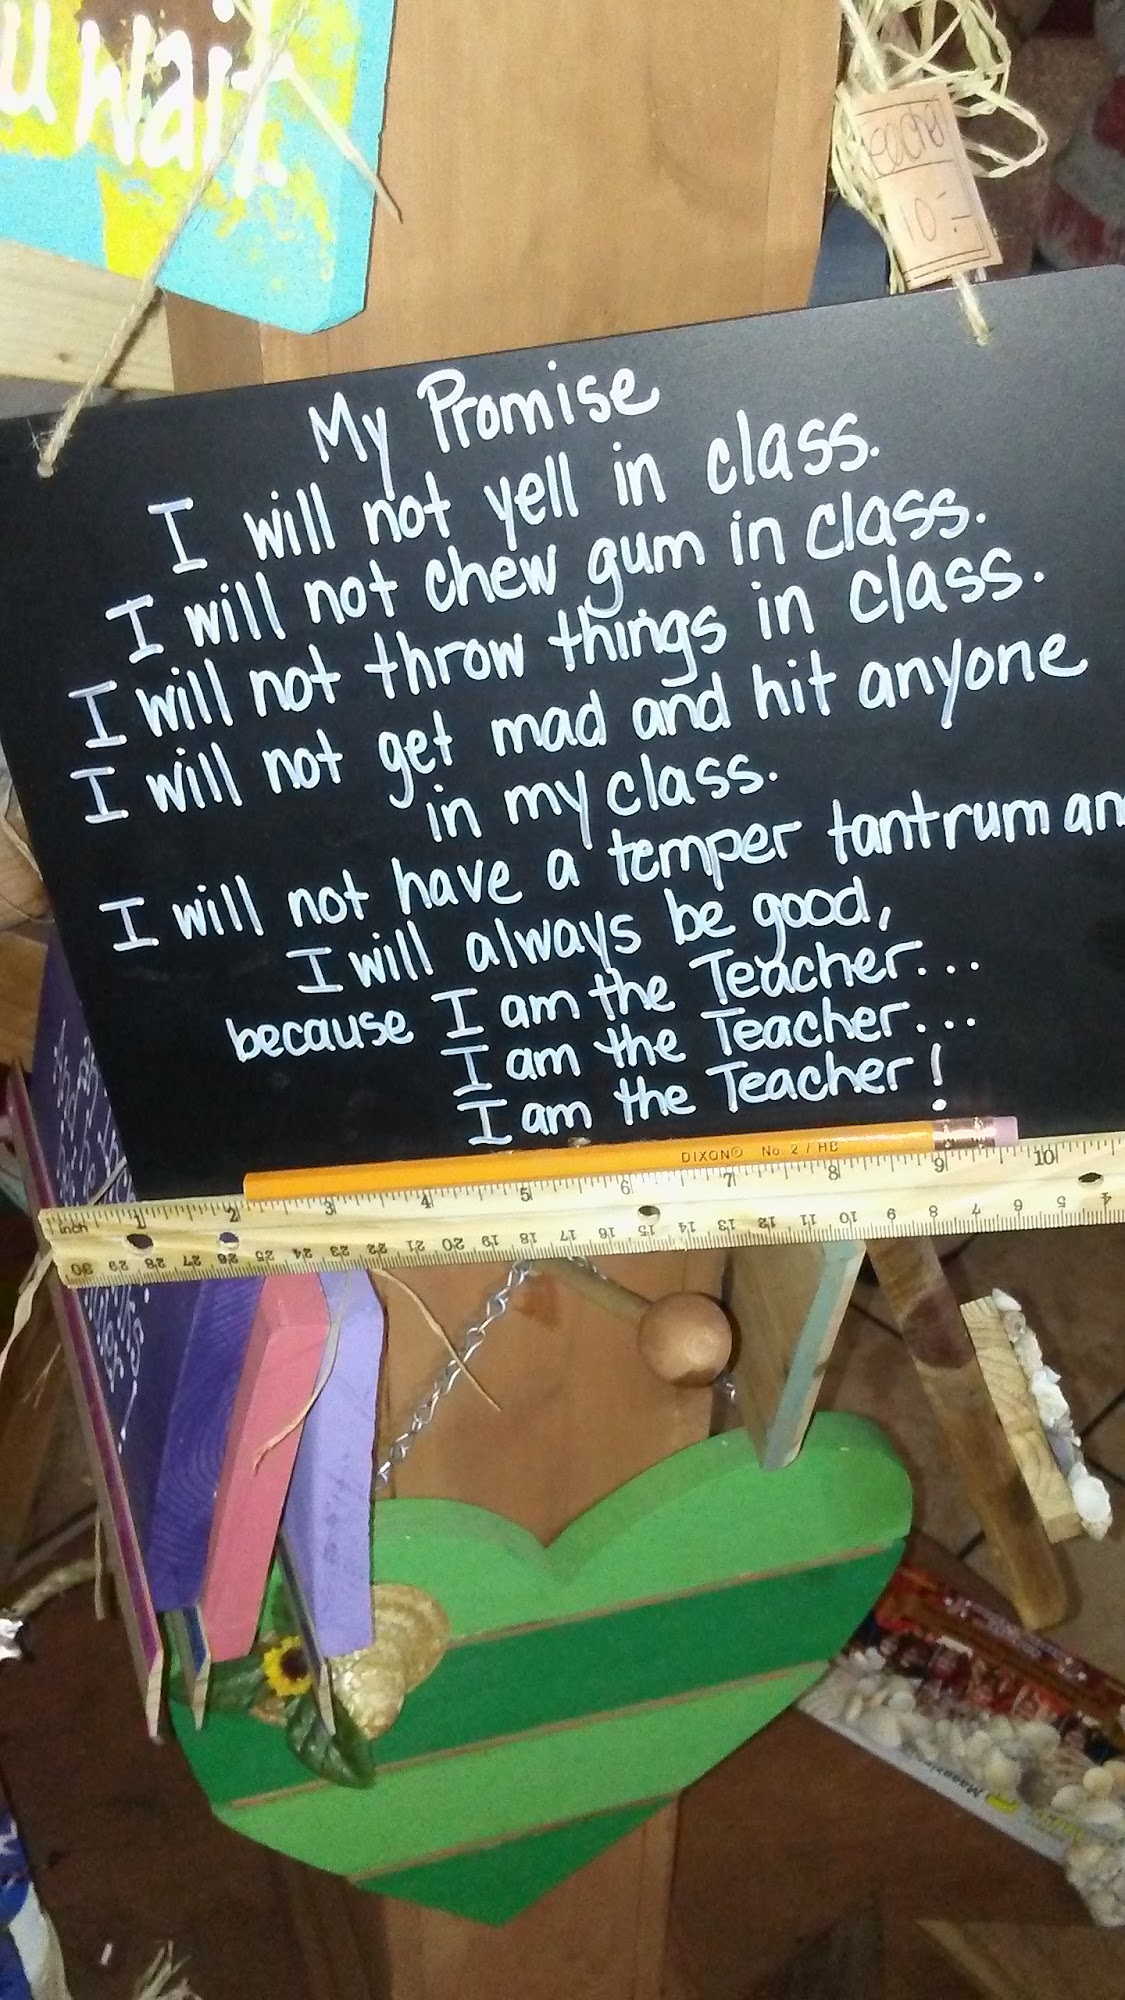 u wait
Teacher
10.-
My Promise
I will not yell in class.
I will not chew gum in class.
I will not throw things in class.
I will not get mad and hit anyone
in my class.
I will not have a temper tantrum an
I will always be good,
because I am the Teacher...
I am the Teacher...
I am the Teacher!
DIXON® No. 2 / HB
inch 1 2 3 4 5 6 7 8 9 10
30 29 28 27 26 25 24 23 22 21 20 19 18 17 16 15 14 13 12 11 10 9 8 7 6 5 4